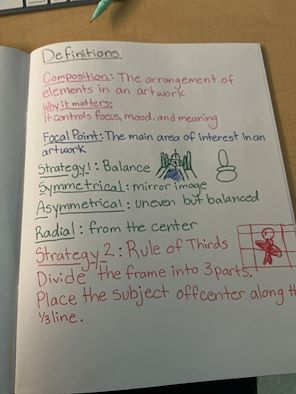 Definitions
Composition: The arrangement of
elements in an artwork
Why it matters:
It controls focus, mood, and meaning
Focal Point: The main area of interest in an
artwork
Strategy 1: Balance
Symmetrical: mirror image
Asymmetrical: uneven but balanced
Radial: from the center
Strategy 2: Rule of Thirds
Divide the frame into 3 parts.
Place the subject offcenter along th
1/3 line.